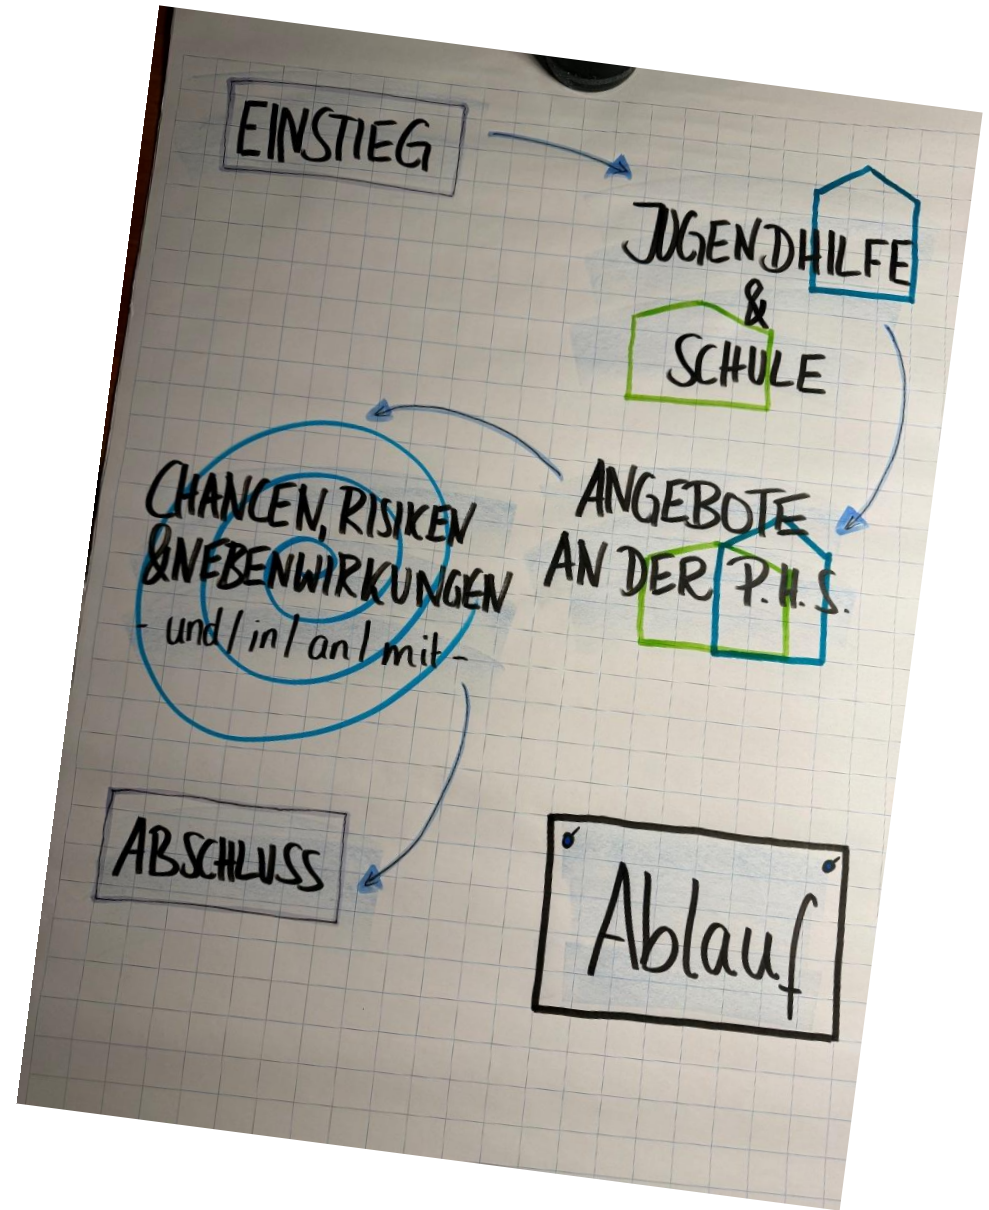 EINSTIEG
JUGENDHILFE
&
SCHULE
ANGEBOTE
AN DER P.H.S.
CHANCEN, RISIKEN
&NEBENWIRKUNGEN
- und / in / an / mit -
ABSCHLUSS
Ablauf